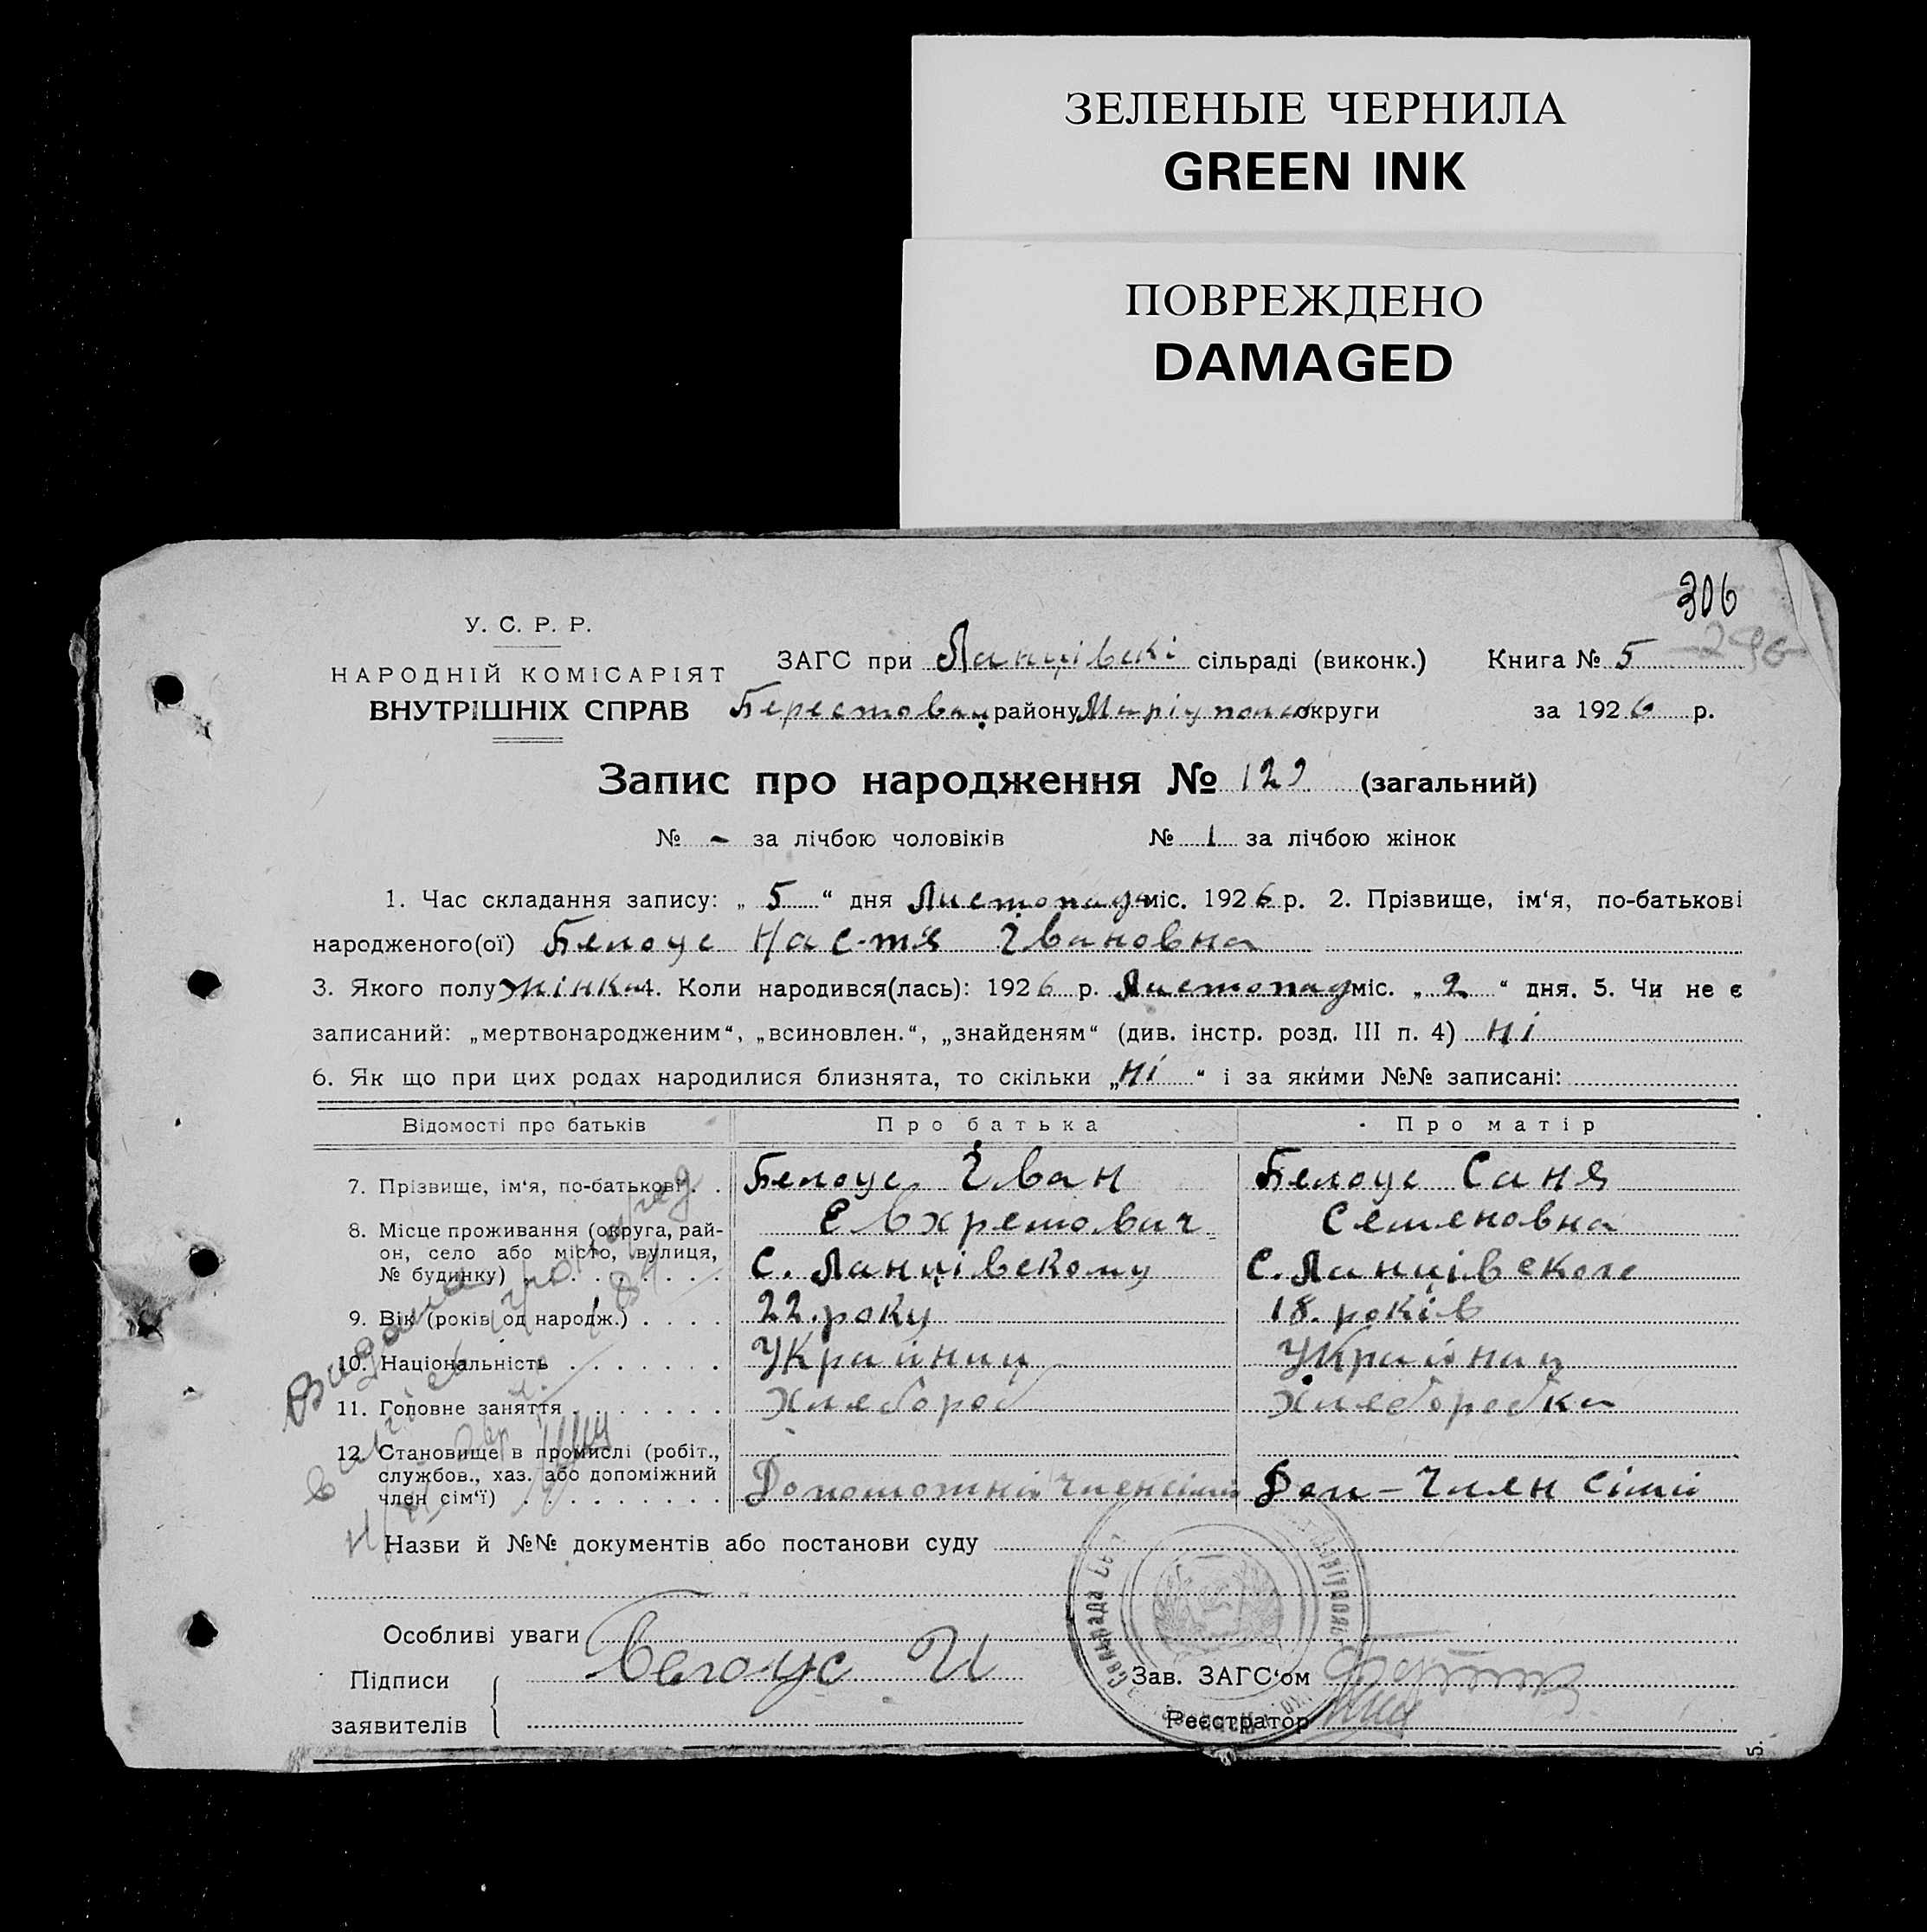 ЗЕЛЕНЫЕ ЧЕРНИЛА
GREEN INK
ПОВРЕЖДЕНО
DAMAGED
306
У. С. Р. Р.
НАРОДНІЙ КОМІСАРІЯТ
ВНУТРІШНІХ СПРАВ
ЗАГС при Ланцівскі сільраді (виконк.) Книга № 5 296
Берестовац району Маріупольс округи за 1926 р.
Запис про народження № 129 (загальний)
№ - за лічбою чоловіків № 1 за лічбою жінок
1. Час складання запису: „ 5 “ дня Листопада міс. 1926 р. 2. Прізвище, ім‘я, по-батькові
народженого(ої) Белоус Настя Івановна
3. Якого полу жінка 4. Коли народився(лась): 1926 р. Листопад міс. „ 2 “ дня. 5. Чи не є
записаний: „мертвонародженим“, „всиновлен.“, „знайденям“ (див. інстр. розд. III п. 4) ні
6. Як що при цих родах народилися близнята, то скільки „ні“ і за якими №№ записані:
Відомості про батьків Про батька Про матір
7. Прізвище, ім‘я, по-батькові . . Белоус Іван Белоус Саня
Євхремович Семеновна
8. Місце проживання (округа, рай-
он, село або місто, вулиця,
№ будинку) . . . . . . . . С. Ланцівскому С. Ланцівского
9. Вік (років од народж.) . . . . 22. року 18. років
10. Національність . . . . . . . Украйнец Украйнец
11. Головне заняття . . . . . . . Хлебороб Хлеборобка
12. Становище в промислі (робіт.,
службов., хаз. або допоміжний
член сім‘ї) . . . . . . . . . Допоможній член сімиі Доп - Член сіміі
Видана
Назви й №№ документів або постанови суду
Особливі уваги
Підписи
заявителів
Белоус И
Зав. ЗАГС‘ом
Реєстратор
5.